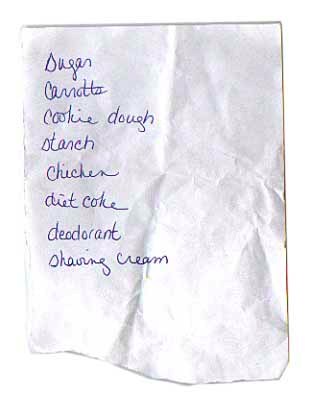 Sugar
Carrotts
Cookie dough
Starch
Chicken
diet coke
deodorant
Shaving Cream